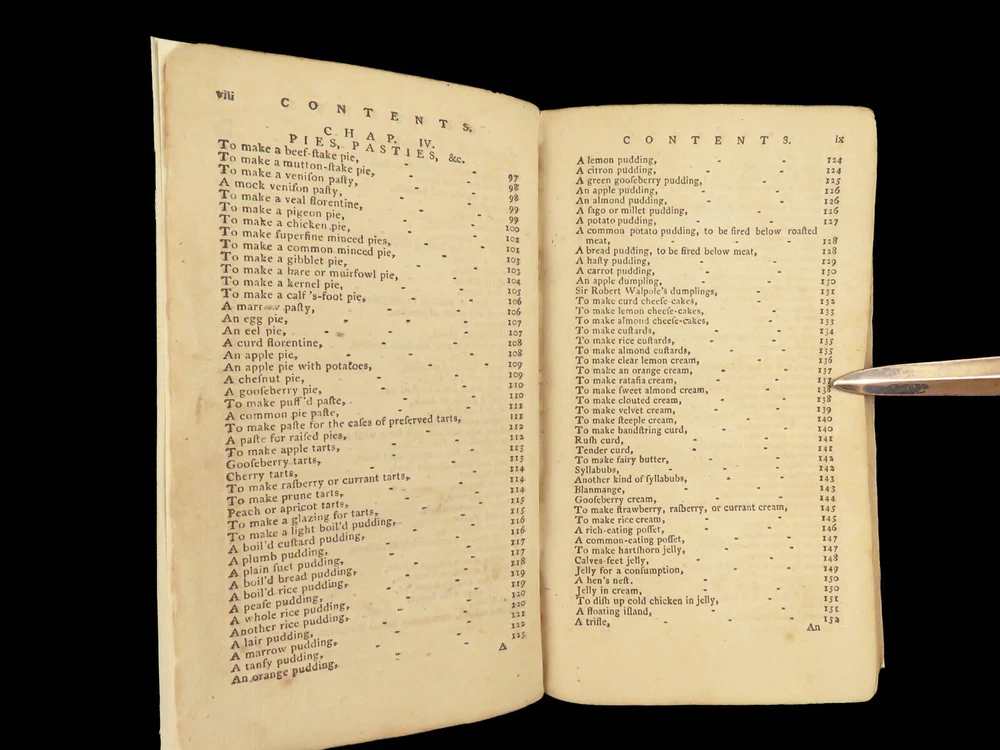 viii CONTENTS.
CHAP. IV.
PIES, PASTIES, &c.
To make a beef-ſtake pie, - - 97
To make a mutton-ſtake pie, - 98
To make a veniſon paſty, - - 98
A mock veniſon paſty, - - 99
To make a veal florentine, - - 99
To make a pigeon pie, - - 100
To make a chicken pie, - - 101
To make ſuperfine minced pies, - - 101
To make a common minced pie, - 103
To make a gibblet pie, - - 103
To make a hare or muirfowl pie, - 104
To make a kernel pie, - - 105
To make a calf's-foot pie, - - 106
A marrow paſty, - - 106
An egg pie, - - 107
An eel pie, - - 107
A curd florentine, - - 108
An apple pie, - - 108
An apple pie with potatoes, - - 109
A cheſnut pie, - - 109
A gooſeberry pie, - - 110
To make puff'd paſte, - - 110
A common pie paſte, - - 111
To make paſte for the caſes of preſerved tarts, 111
A paſte for raiſed pies, - - 112
To make apple tarts, - - 112
Gooſeberry tarts, - - 113
Cherry tarts, - - 113
To make raſberry or currant tarts, - 114
To make prune tarts, - - 114
Peach or apricot tarts, - - 114
To make a glazing for tarts, - - 115
To make a light boil'd pudding, - 115
A boil'd cuſtard pudding, - - 116
A plumb pudding, - - 116
A plain ſuet pudding, - - 117
A boil'd bread pudding, - - 117
A boil'd rice pudding, - - 118
A peaſe pudding, - - 119
A whole rice pudding, - - 119
Another rice pudding, - - 120
A lair pudding, - - 120
A marrow pudding, - - 121
A tanſy pudding, - - 122
An orange pudding, - - 123
A
CONTENTS. ix
A lemon pudding, - - 124
A citron pudding, - - 124
A green gooſeberry pudding, - 125
An apple pudding, - - 126
An almond pudding, - - 126
A ſago or millet pudding, - - 126
A potato pudding, - - 127
A common potato pudding, to be fired below roaſted
meat, - - - 128
A bread pudding, to be fired below meat, - 128
A haſty pudding, - - 129
A carrot pudding, - - 130
An apple dumpling, - - 130
Sir Robert Walpole's dumplings, - 131
To make curd cheeſe cakes, - - 132
To make lemon cheeſe-cakes, - 133
To make almond cheeſe-cakes, - 133
To make cuſtards, - - 134
To make rice cuſtards, - - 135
To make almond cuſtards, - - 135
To make clear lemon cream, - 136
To make an orange cream, - - 137
To make ratafia cream, - - 137
To make ſweet almond cream, - 138
To make clouted cream, - - 138
To make velvet cream, - - 139
To make ſteeple cream, - - 140
To make bandſtring curd, - - 140
Ruſh curd, - - 141
Tender curd, - - 141
To make fairy butter, - - 142
Syllabubs, - - 142
Another kind of ſyllabubs, - - 143
Blanmange, - - 143
Gooſeberry cream, - - 144
To make ſtrawberry, raſberry, or currant cream, 145
To make rice cream, - - 145
A rich-eating poſſet, - - 146
A common-eating poſſet, - - 147
To make hartſhorn jelly, - - 147
Calves-feet jelly, - - 148
Jelly for a conſumption, - - 149
A hen's neſt. - - 150
Jelly in cream, - - 150
To diſh up cold chicken in jelly, - 151
A floating iſland, - - 151
A trifle, - - 152
An